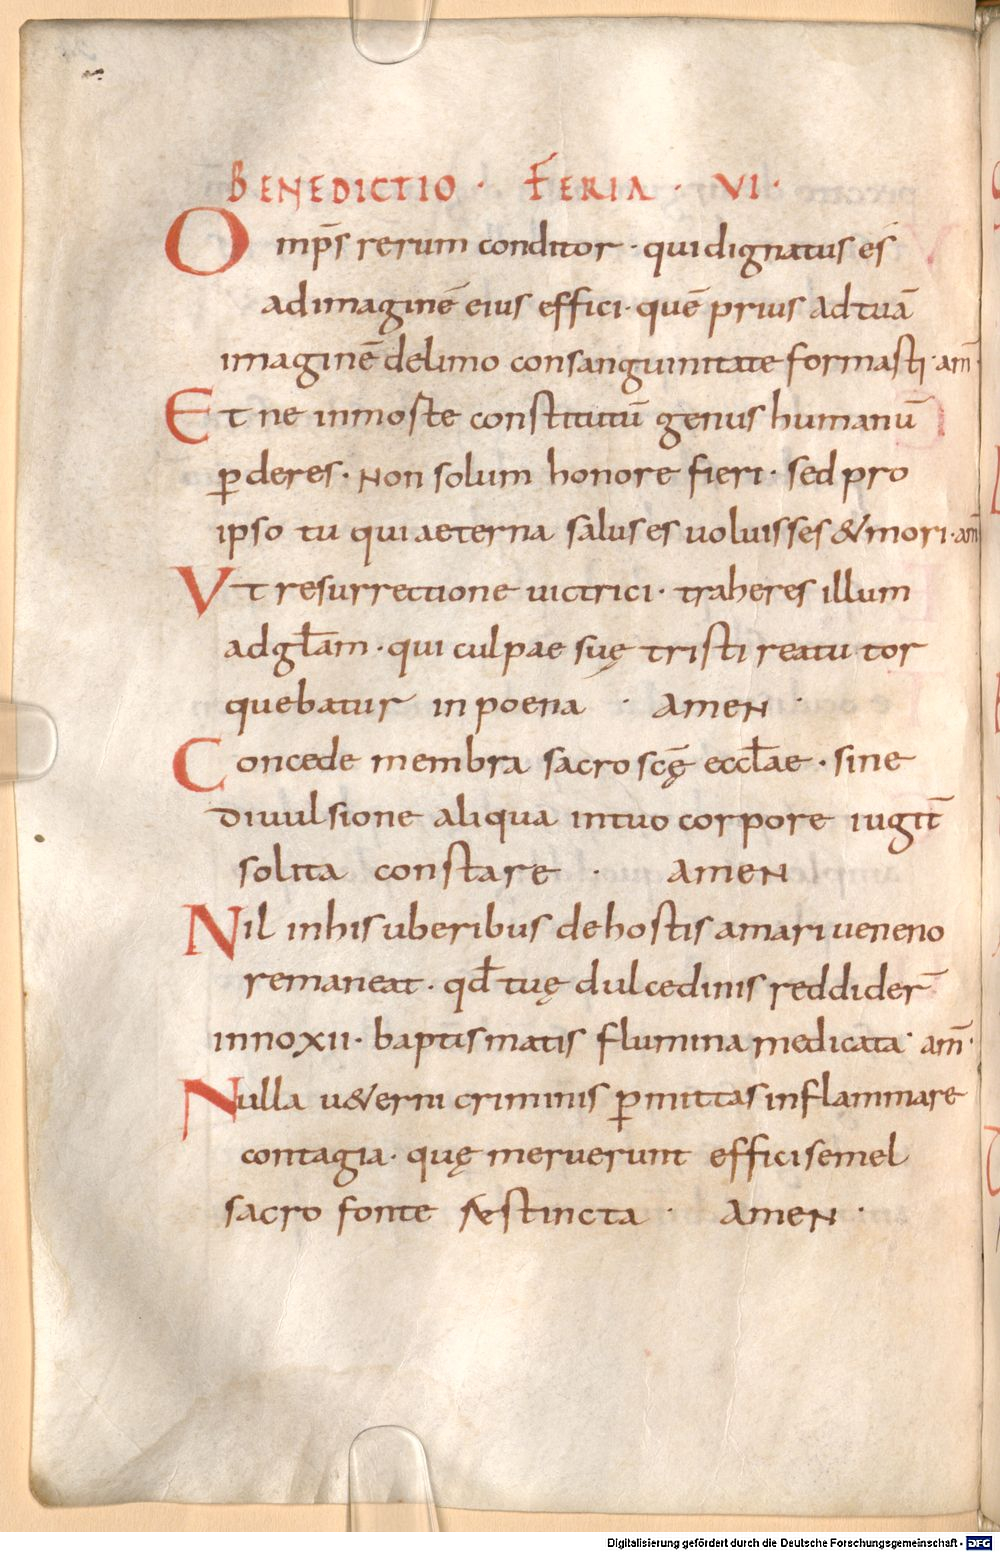 BENEDICTIO · FERIA · VI ·
Omp̄s rerum conditor · qui dignatus es
ad imaginē eius effici · quē prius ad tuā
imaginē de limo consanguinitate formasti · am̄ ·
Et ne in moste constitutū genus humanū
ꝑderes · Non solum honore fieri · sed pro
ipso tu qui aeterna salus es uoluisses & mori · am̄
Vt resurrectione uictrici · traheres illum
ad gl̄am · qui culpae suę tristi reatu tor
quebatur in poena · AMEN ·
Concede membra sacro scę̄ eccl̄ae · sine
diuulsione aliqua in tuo corpore iugit̄
solita constare · AMEN
Nil in his uberibus de hostis amari ueneno
remaneat · qd̄ tuę dulcedinis reddider̄
innoxii · baptismatis flumina medicata · am̄ ·
Nulla u&erni criminis ꝑmittas inflammare
contagia · quę meruerunt effici semel
sacro fonte extincta · AMEN ·
Digitalisierung gefördert durch die Deutsche Forschungsgemeinschaft - DFG